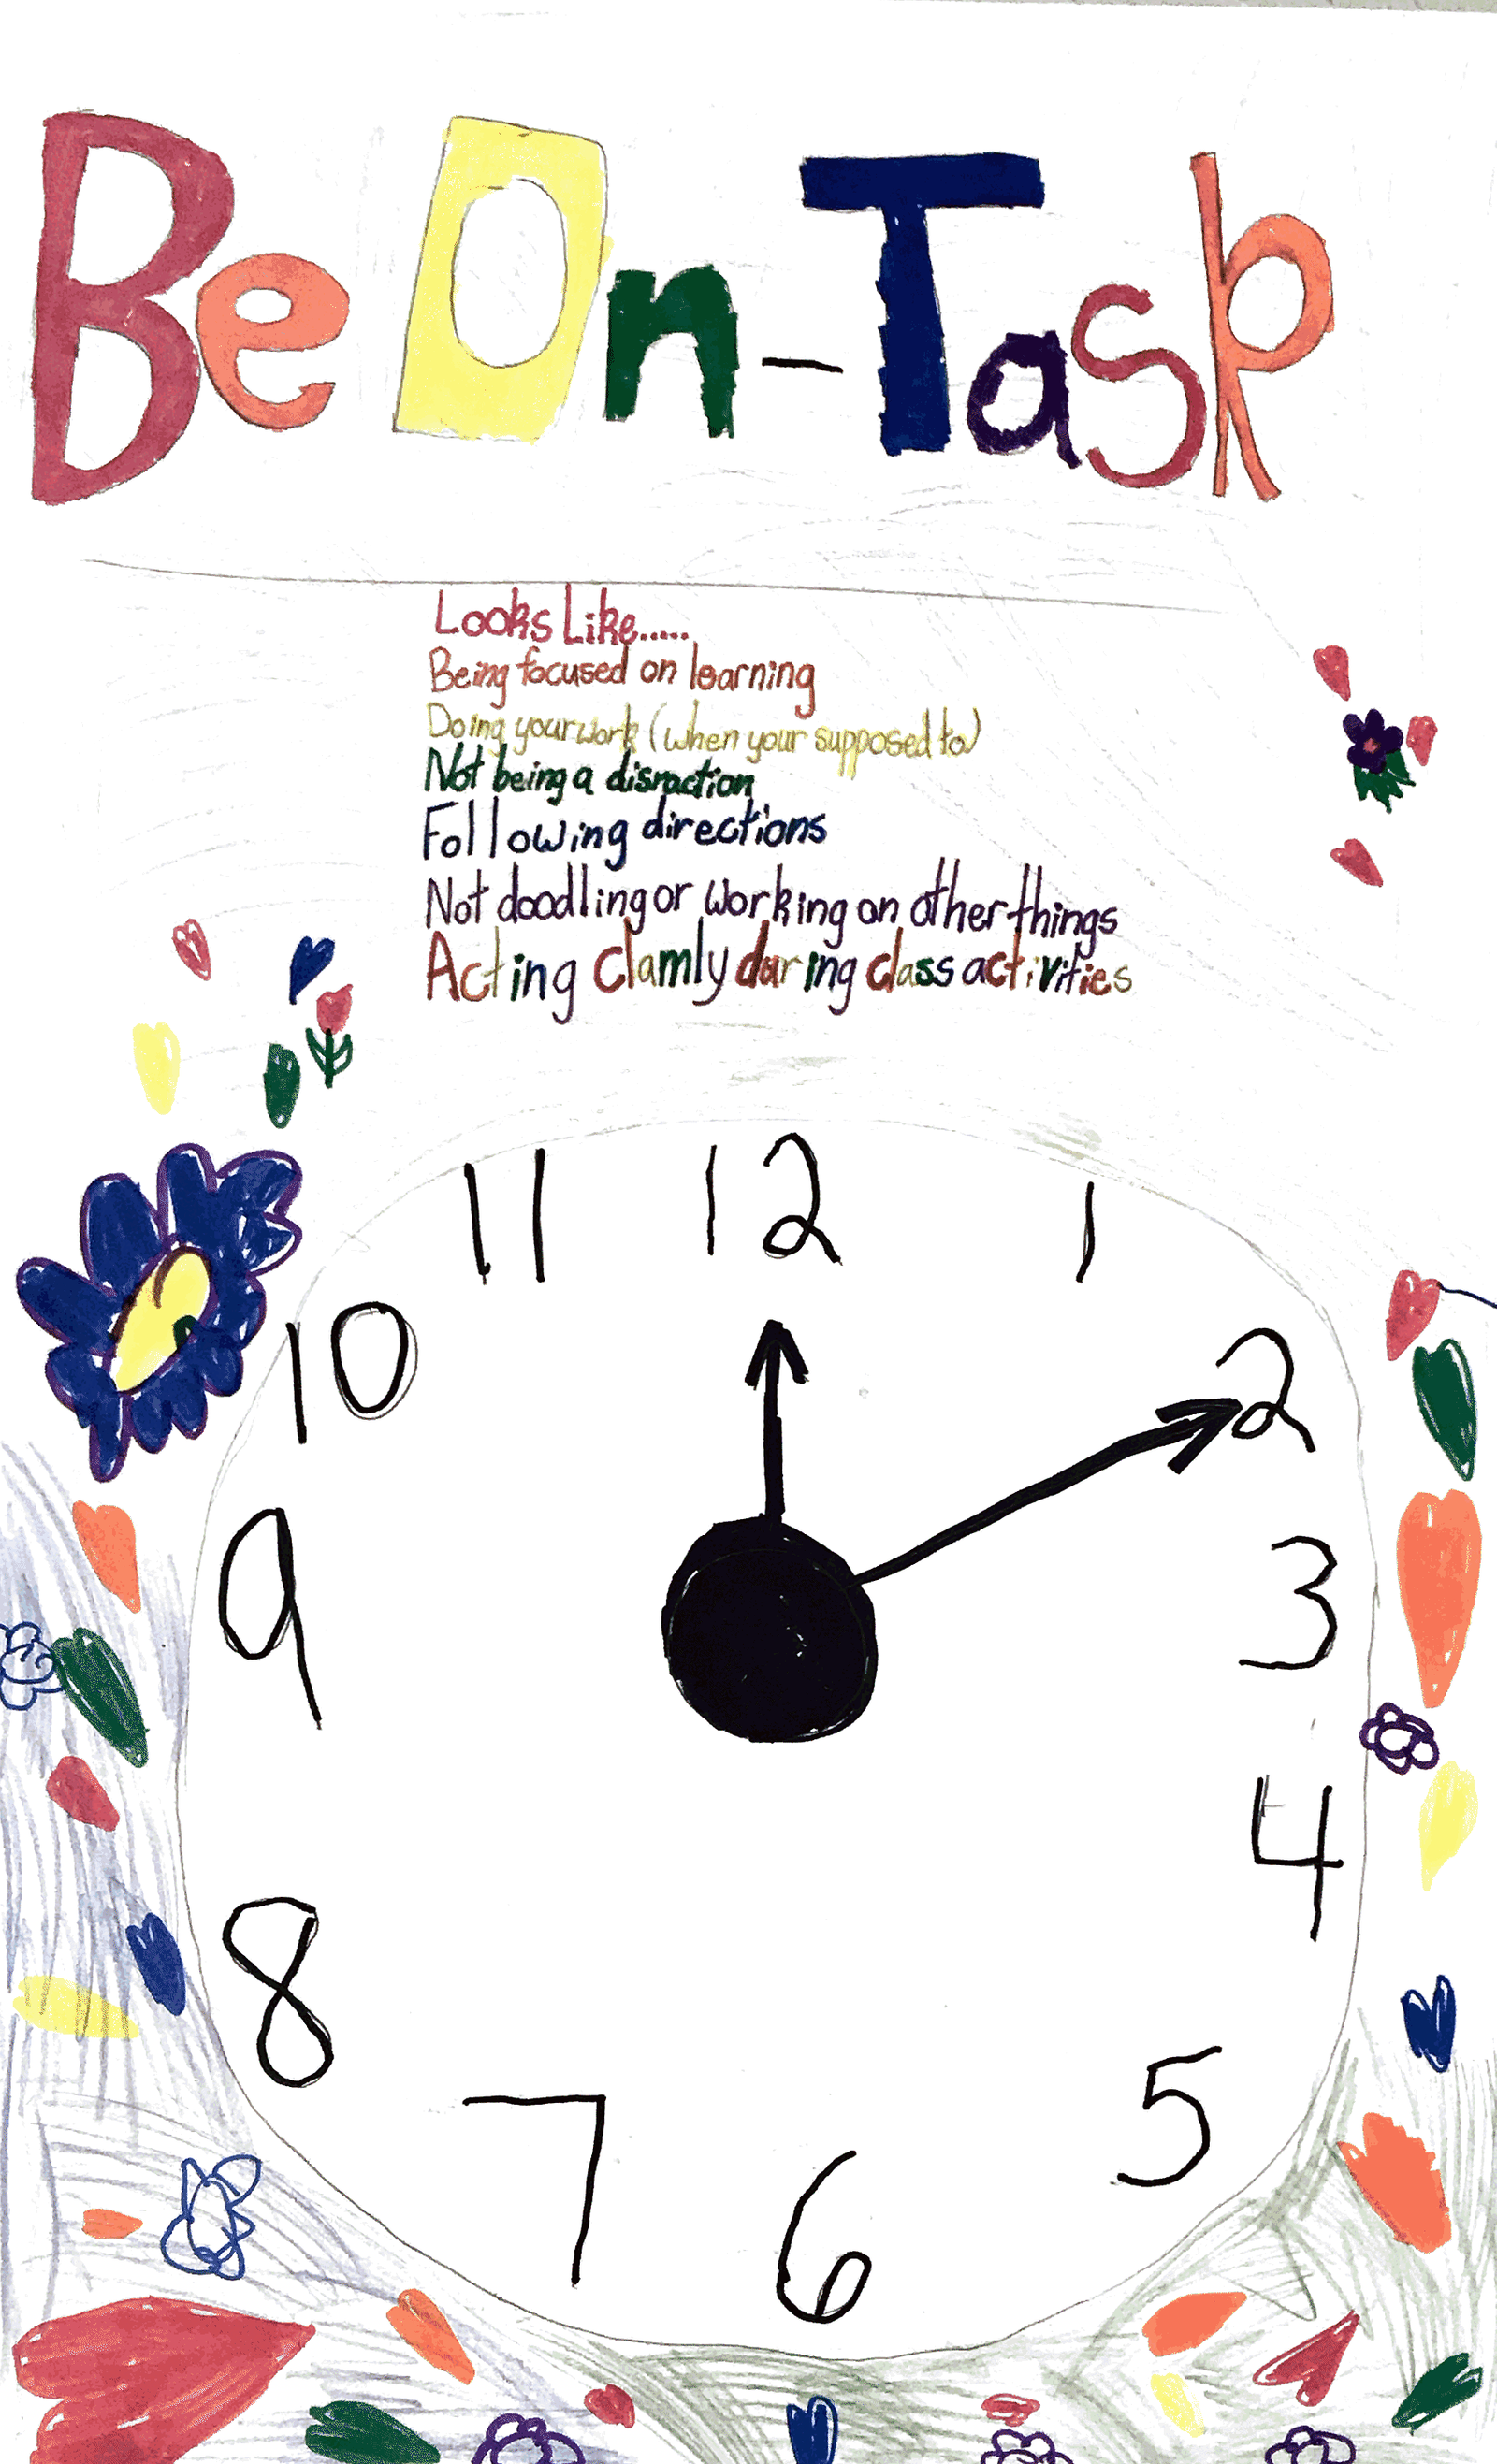 Be On-Task
Looks Like.....
Being focused on learning
Doing your work (when your supposed to)
Not being a disraction
Following directions
Not doodling or working on other things
Acting Clamly during class activities
11 12 1
10 2
9 3
8 4
7 5
6